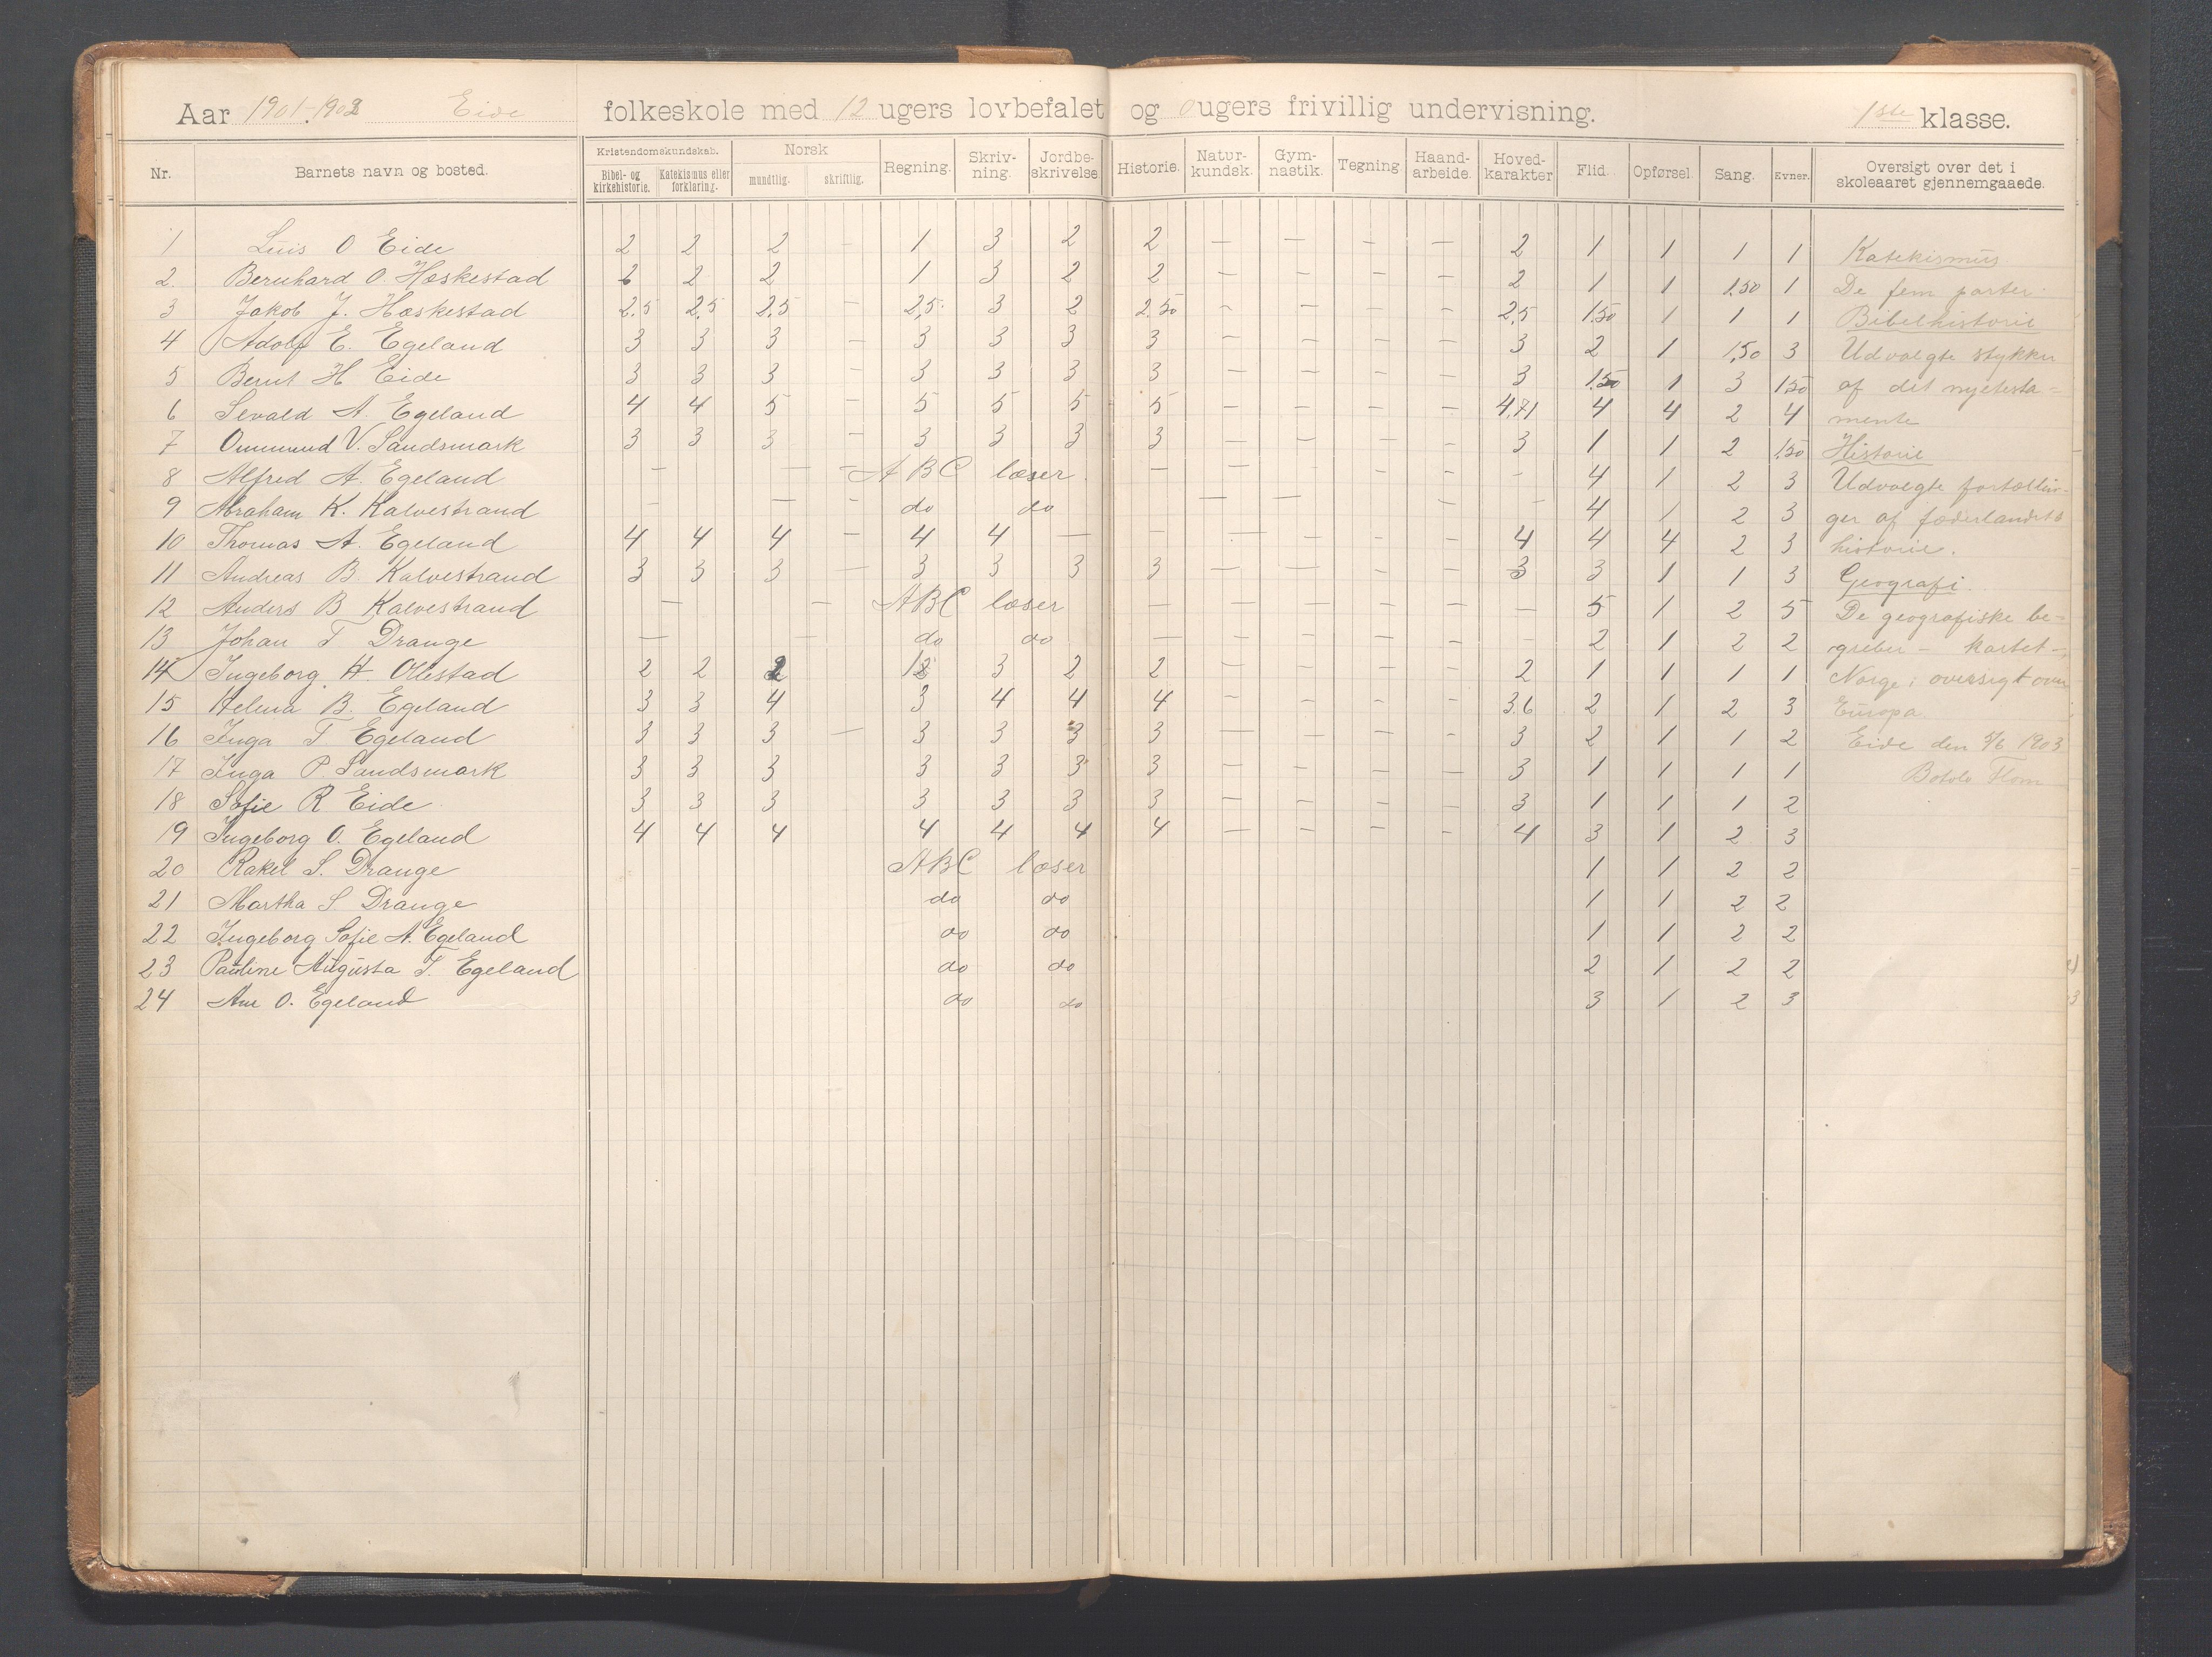 Aar 1901-1902 Eide folkeskole med 12 ugers lovbefalet og 0 ugers frivillig undervisning. 1ste klasse.
Nr. Barnets navn og bosted. Kristendomskundskab. Bibel- og kirkehistorie. Katekismus eller forklaring. Norsk mundtlig. skriftlig. Regning. Skriv-ning. Jordbe-skrivelse Historie. Natur-kundsk. Gym-nastik. Tegning Haand-arbeide. Hoved-karakter Flid. Opførsel. Sang. Evner. Oversigt over det i skoleaaret gjennemgaaede.
1 Luis O Eide 2 2 2 - 1 3 2 2 - - - - 2 1 1 1 1 Katekismus.
2. Bernhard O. Hæskestad 2 2 2 1 3 2 2 - - - - 2 1 1 1.50 1 De fem parter.
3 Jakob J. Hæskestad 2.5 2,5 2,5 - 2,5 3 2 2.50 - - - - 2,5 1.50 1 1 1 Bibelhistorie
4 Adolf E. Egeland 3 3 3 - 3 3 3 3 - - - - 3 2 1 1,50 3 Udvalgte stykker
5 Bernt H Eide 3 3 3 - 3 3 3 3 - - - - 3 1.50 1 3 1.50 af det nyetesta-
6 Sevald A. Egeland 4 4 5 - 5 5 5 5 - - - - 4,71 4 4 2 4 mente
7 Ommund V. Sandsmark 3 3 3 - 3 3 3 3 - - - - 3 1 1 2 1.50 Historie
8 Alfred A. Egeland - - - ABC læser - - - - - - 4 1 2 3 Udvalgte fortællin-
9 Abraham K. Kalvestrand - - - do do - - - - 4 1 2 3 ger af fæderlandets
10 Thomas A. Egeland 4 4 4 - 4 4 - - - - - - 4 4 4 2 3 historie.
11 Andreas B. Kalvestrand 3 3 3 - 3 3 3 3 - - - - 3 3 1 1 3 Geografi.
12 Anders B Kalvestrand - - ABC læser - - - - - - 5 1 2 5 De geografiske be-
13 Johan T Drange - - do do - - - - - - 2 1 2 2 greber - kartet -,
14 Ingeborg H. Ollestad 2 2 2 12 3 2 2 - - - - 2 1 1 1 1 Norge; oversigt over
15 Helena B. Egeland 3 3 4 3 4 4 4 - - - - 3.6 2 1 2 3 Europa
16 Inga T Egeland 3 3 3 - 3 3 3 3 - - - - 3 2 1 1 2 Eide den 5/6 1903
17 Inga P. Sandsmark 3 3 3 3 3 3 3 - - - - 3 1 1 1 1 Botolv Flom
18 Sofie R Eide 3 3 3 3 3 3 3 - - - - 3 1 1 1 2
19 Ingeborg O. Egeland 4 4 4 4 4 4 4 - - - - 4 3 1 2 3
20 Rakel S. Drange ABC læser 1 1 2 2
21 Martha S. Drange do do 1 1 2 2
22 Ingeborg Sofie A. Egeland do do 1 1 2 2
23 Pauline Augusta T. Egeland do do 2 1 2 2
24 Ane O. Egeland do do 3 1 2 3